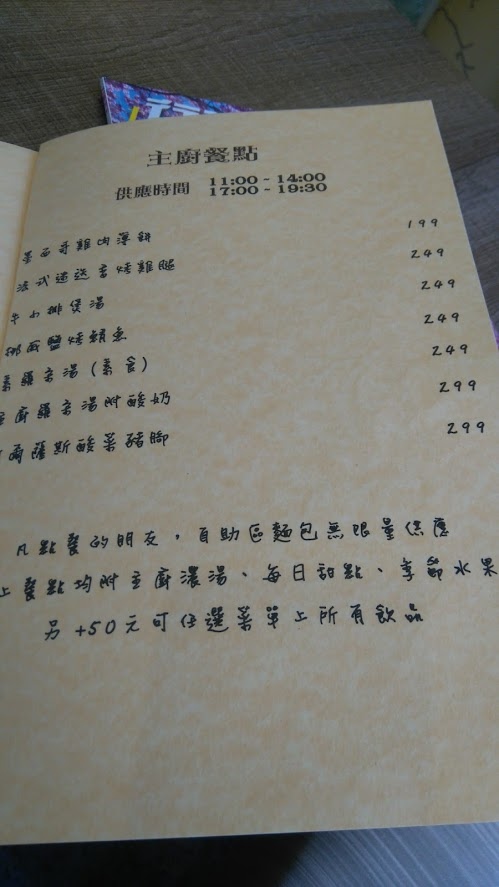 主廚餐點
供應時間 11:00 - 14:00
17:00 - 19:30
墨西哥雞肉薄餅 199
法式迷迭香烤雞腿 249
牛小排煲湯 249
挪威鹽烤鯖魚 249
素羅宋湯(素食) 249
廚羅宋湯附酸奶 299
爾薩斯酸菜豬腳 299
凡點餐的朋友,自助區麵包無限量供應
上餐點均附主廚濃湯、每日甜點、季節水果
另+50元可任選菜單上所有飲品